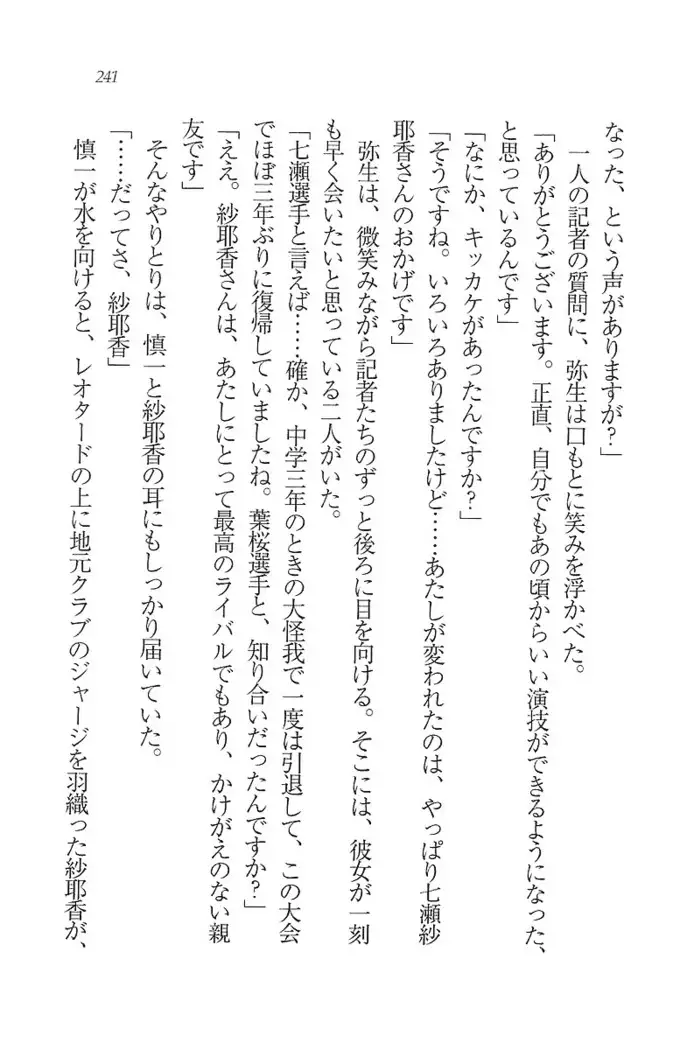 241
なった、という声がありますが？」
一人の記者の質問に、弥生は口もとに笑みを浮かべた。
「ありがとうございます。正直、自分でもあの頃からいい演技ができるようになった、
と思っているんです」
「なにか、キッカケがあったんですか？」
「そうですね。いろいろありましたけど……あたしが変われたのは、やっぱり七瀬紗
耶香さんのおかげです」
弥生は、微笑みながら記者たちのずっと後ろに目を向ける。そこには、彼女が一刻
も早く会いたいと思っている二人がいた。
「七瀬選手と言えば……確か、中学三年のときの大怪我で一度は引退して、この大会
でほぼ三年ぶりに復帰していましたね。葉桜選手と、知り合いだったんですか？」
「ええ。紗耶香さんは、あたしにとって最高のライバルでもあり、かけがえのない親
友です」
そんなやりとりは、慎一と紗耶香の耳にもしっかり届いていた。
「……だってさ、紗耶香」
慎一が水を向けると、レオタードの上に地元クラブのジャージを羽織った紗耶香が、